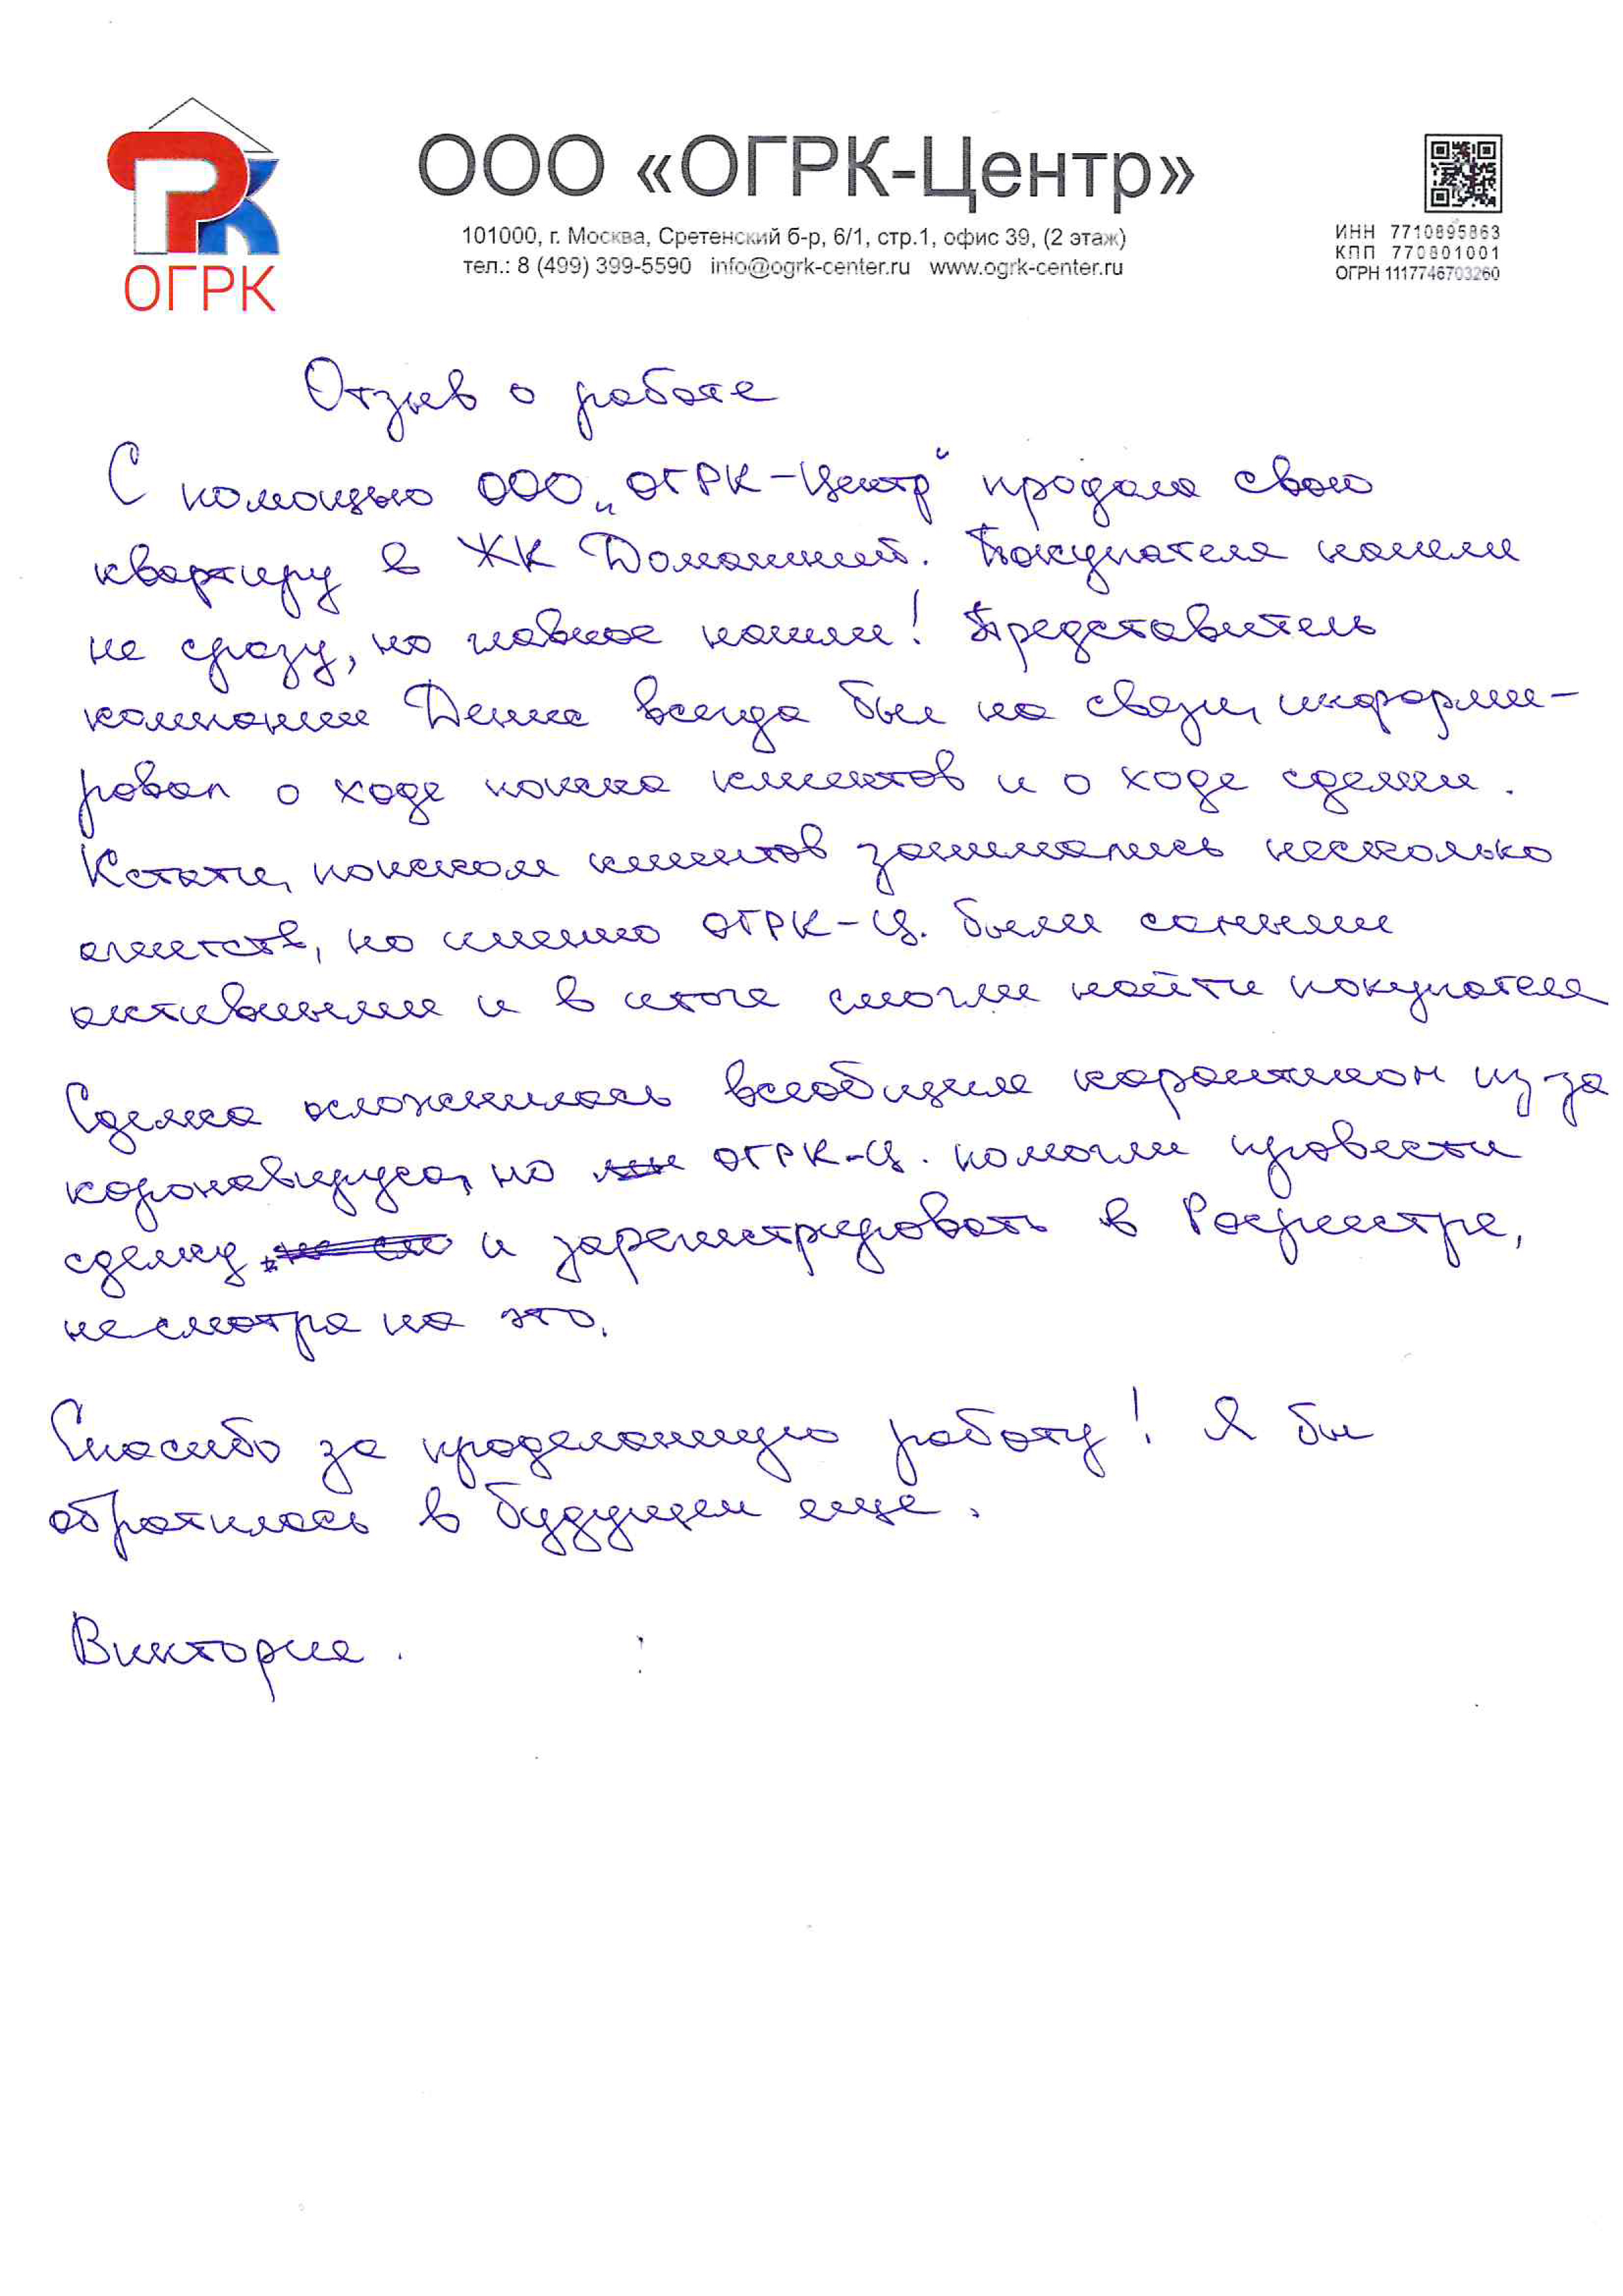 ООО «ОГРК-Центр»
101000, г. Москва, Сретенский б-р, 6/1, стр.1, офис 39, (2 этаж)
тел.: 8 (499) 399-5590 info@ogrk-center.ru www.ogrk-center.ru
ИНН 7710895863
КПП 770801001
ОГРН 1117746703260
РК
ОГРК
Отзыв о работе
С помощью ООО „ОГРК-Центр“ продала свою
квартиру в ЖК Домашний. Покупателя нашли
не сразу, но главное нашли! Представитель
компании Денис всегда был на связи, информи-
ровал о ходе поиска клиентов и о ходе сделки.
Кстати, поиском клиентов занимались несколько
агентств, но именно ОГРК-Ц. были самыми
активными и в итоге смогли найти покупателя
Сделка осложнилась всеобщим карантином из-за
коронавируса, но ОГРК-Ц. помогли провести
сделку и зарегистрировать в Росреестре,
несмотря на это.
Спасибо за проделанную работу! Я бы
обратилась в будущем еще.
Виктория.